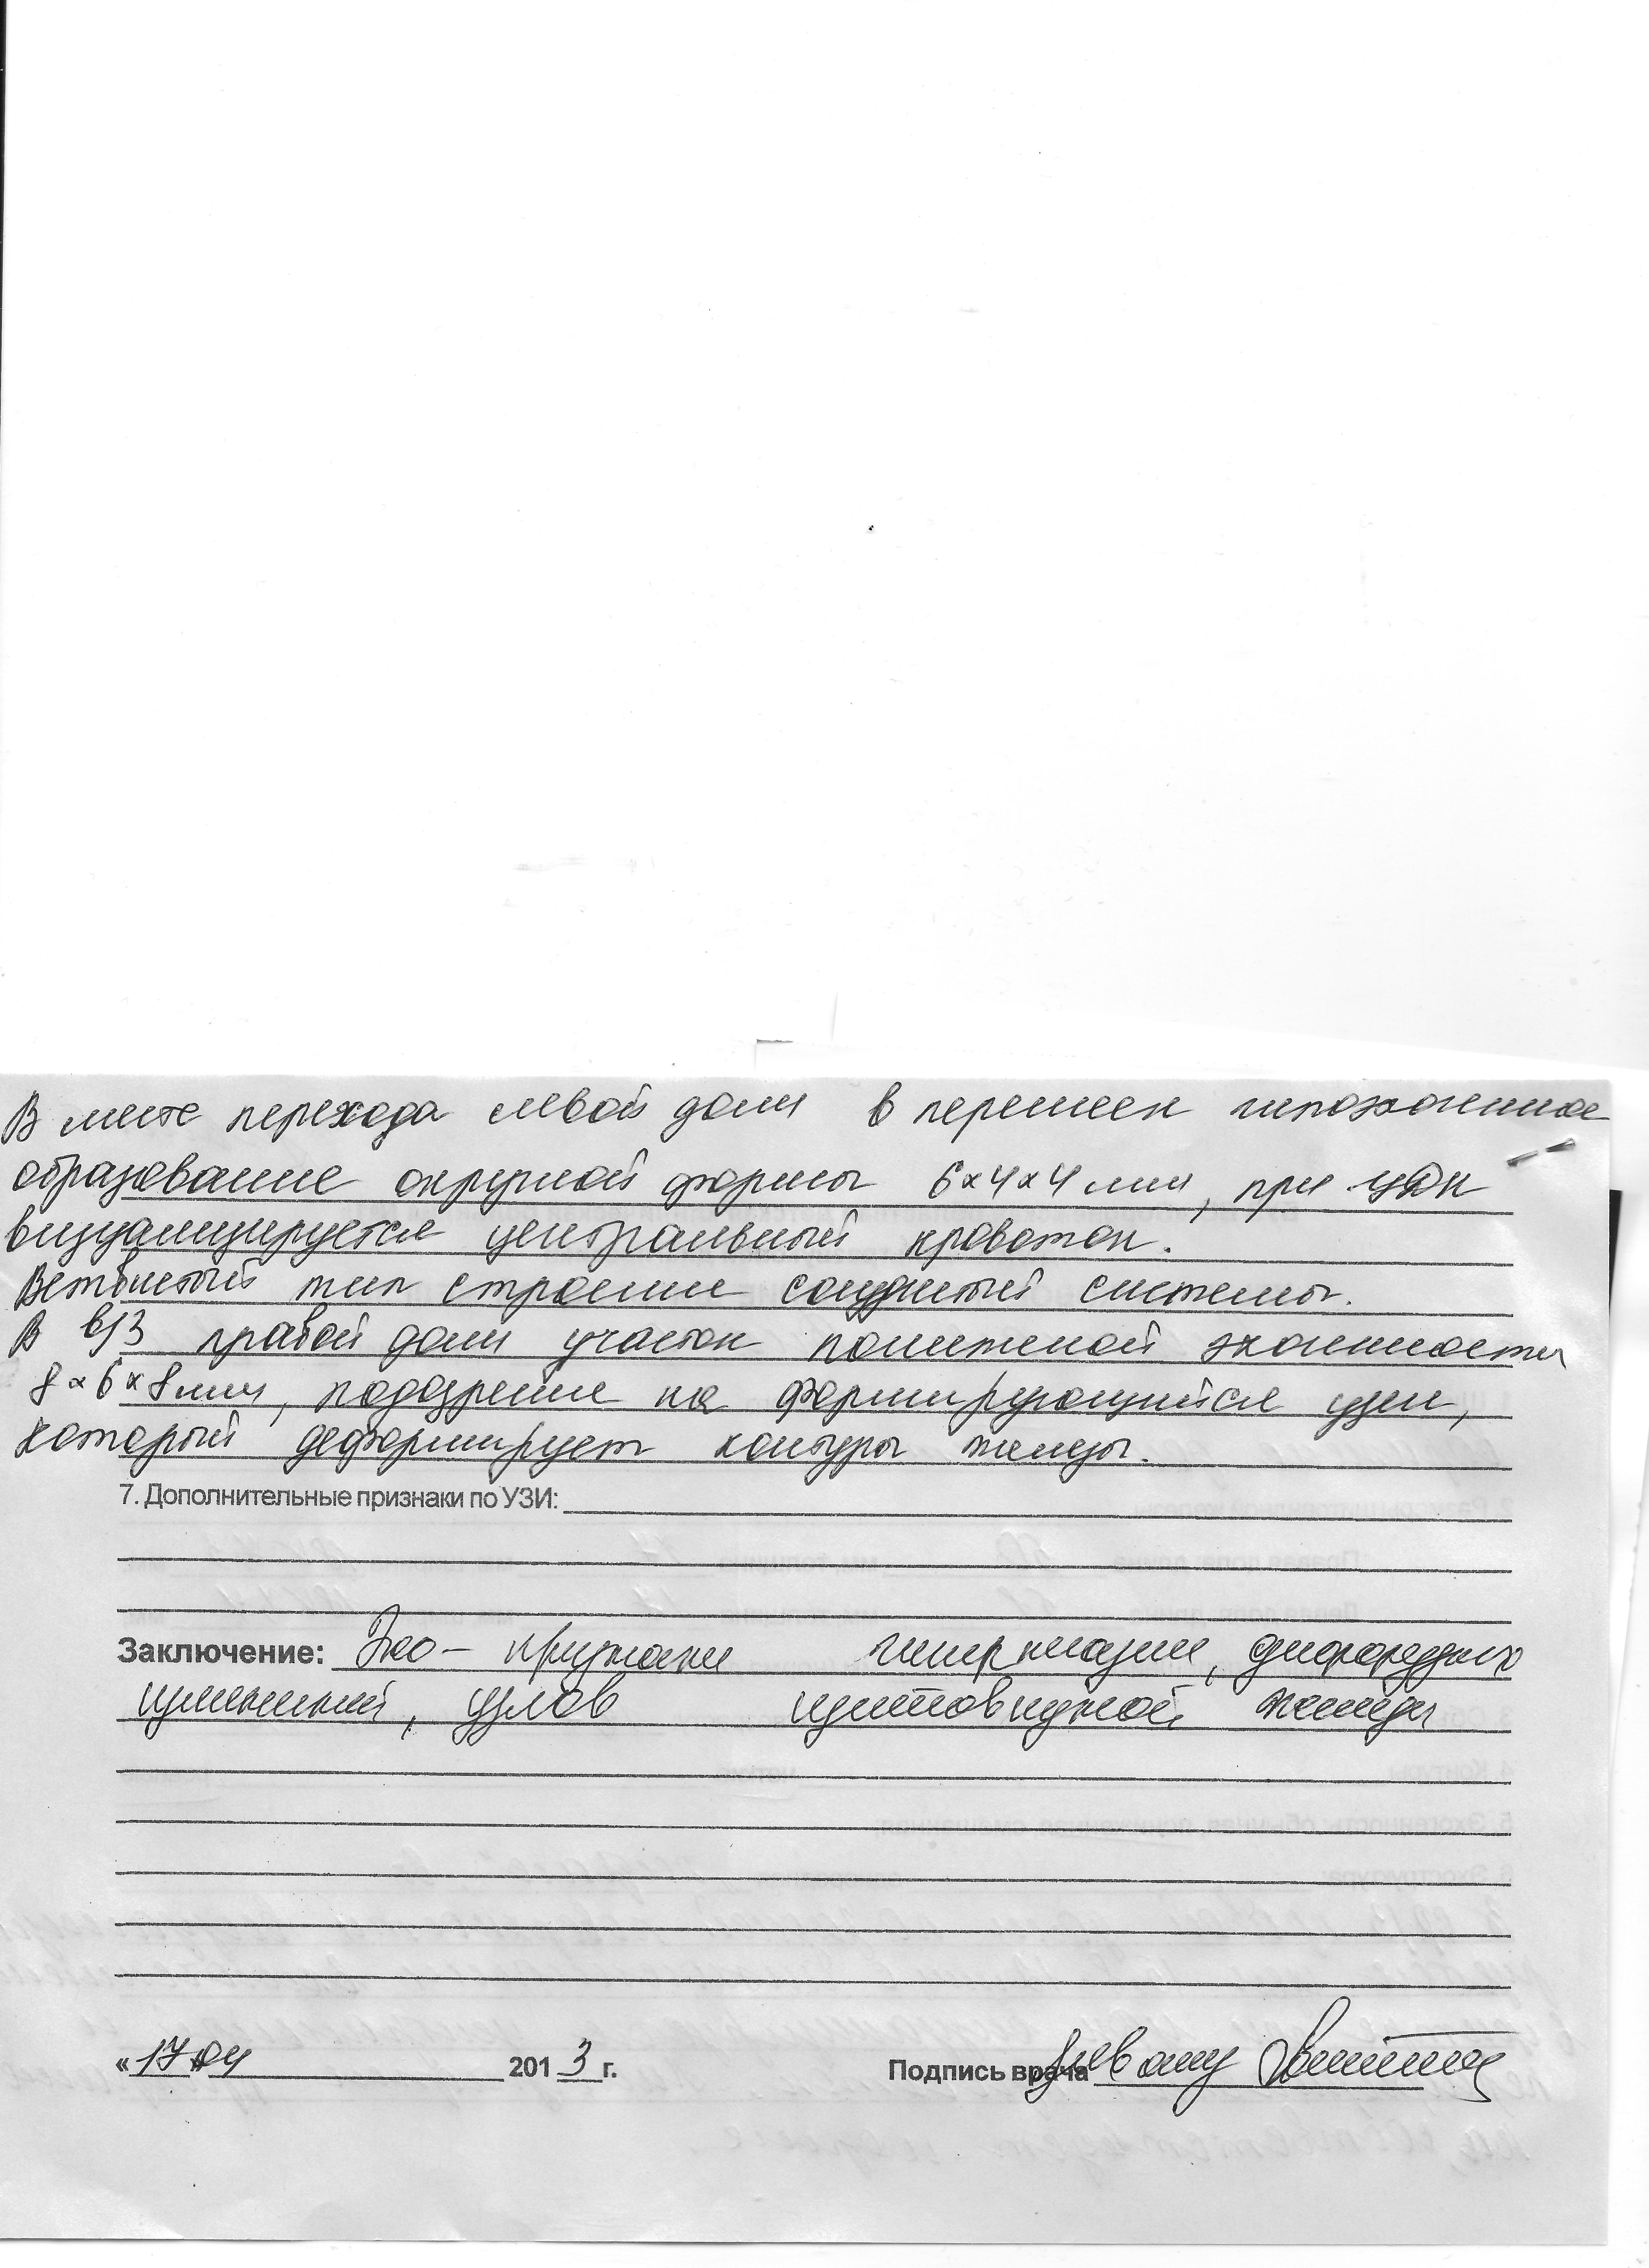 В месте перехода левой доли в перешеек гипоэхогенное
образование округлой формы 6×4×4 мм, при ЦДК
визуализируется центральный кровоток.
Ветвистый тип строения сосудистой системы.
В в/3 правой доли участок пониженной эхогенности
8×6×8 мм, подозрение на формирующийся узел,
который деформирует контуры железы.
7. Дополнительные признаки по УЗИ:
Заключение: Эхо-признаки гиперплазии, диффузных
изменений, узлов щитовидной железы
«17» 04 2013 г. Подпись врача